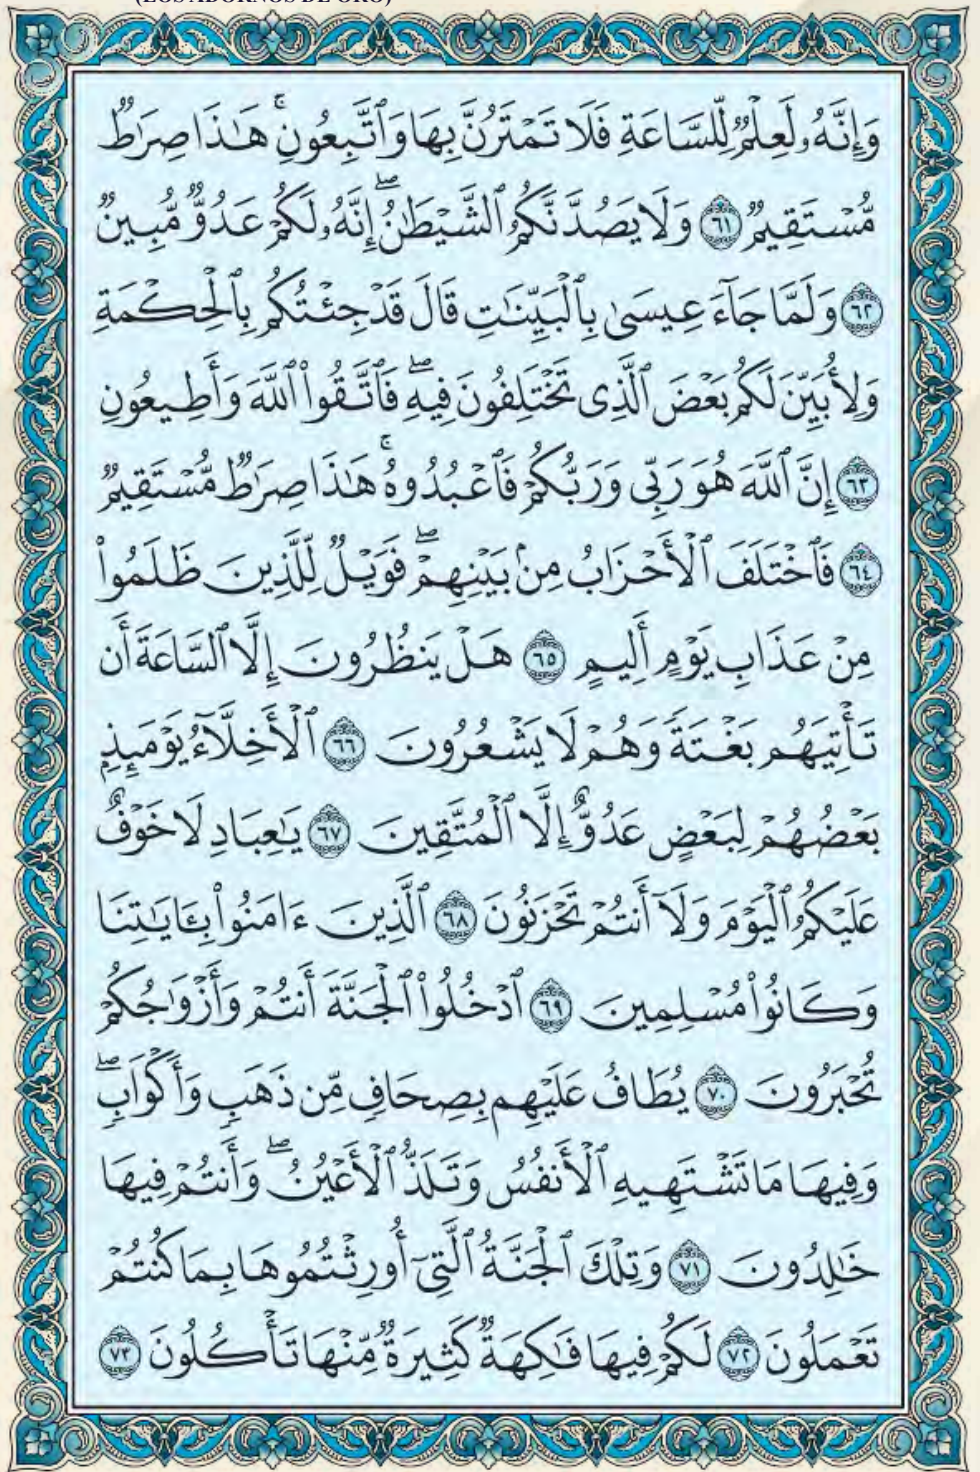 (LOS ADORNOS DE ORO)
وَإِنَّهُۥ لَعِلْمٌ لِّلسَّاعَةِ فَلَا تَمْتَرُنَّ بِهَا وَٱتَّبِعُونِ ۚ هَـٰذَا صِرَٰطٌ
مُّسْتَقِيمٌ ٦١ وَلَا يَصُدَّنَّكُمُ ٱلشَّيْطَـٰنُ ۖ إِنَّهُۥ لَكُمْ عَدُوٌّ مُّبِينٌ
٦٢ وَلَمَّا جَآءَ عِيسَىٰ بِٱلْبَيِّنَـٰتِ قَالَ قَدْ جِئْتُكُم بِٱلْحِكْمَةِ
وَلِأُبَيِّنَ لَكُم بَعْضَ ٱلَّذِى تَخْتَلِفُونَ فِيهِ ۖ فَٱتَّقُوا۟ ٱللَّهَ وَأَطِيعُونِ
٦٣ إِنَّ ٱللَّهَ هُوَ رَبِّى وَرَبُّكُمْ فَٱعْبُدُوهُ ۚ هَـٰذَا صِرَٰطٌ مُّسْتَقِيمٌ
٦٤ فَٱخْتَلَفَ ٱلْأَحْزَابُ مِنۢ بَيْنِهِمْ ۖ فَوَيْلٌ لِّلَّذِينَ ظَلَمُوا۟
مِنْ عَذَابِ يَوْمٍ أَلِيمٍ ٦٥ هَلْ يَنظُرُونَ إِلَّا ٱلسَّاعَةَ أَن
تَأْتِيَهُم بَغْتَةً وَهُمْ لَا يَشْعُرُونَ ٦٦ ٱلْأَخِلَّآءُ يَوْمَئِذٍۭ
بَعْضُهُمْ لِبَعْضٍ عَدُوٌّ إِلَّا ٱلْمُتَّقِينَ ٦٧ يَـٰعِبَادِ لَا خَوْفٌ
عَلَيْكُمُ ٱلْيَوْمَ وَلَآ أَنتُمْ تَحْزَنُونَ ٦٨ ٱلَّذِينَ ءَامَنُوا۟ بِـَٔايَـٰتِنَا
وَكَانُوا۟ مُسْلِمِينَ ٦٩ ٱدْخُلُوا۟ ٱلْجَنَّةَ أَنتُمْ وَأَزْوَٰجُكُمْ
تُحْبَرُونَ ٧٠ يُطَافُ عَلَيْهِم بِصِحَافٍ مِّن ذَهَبٍ وَأَكْوَابٍ ۖ
وَفِيهَا مَا تَشْتَهِيهِ ٱلْأَنفُسُ وَتَلَذُّ ٱلْأَعْيُنُ ۖ وَأَنتُمْ فِيهَا
خَـٰلِدُونَ ٧١ وَتِلْكَ ٱلْجَنَّةُ ٱلَّتِىٓ أُورِثْتُمُوهَا بِمَا كُنتُمْ
تَعْمَلُونَ ٧٢ لَكُمْ فِيهَا فَـٰكِهَةٌ كَثِيرَةٌ مِّنْهَا تَأْكُلُونَ ٧٣